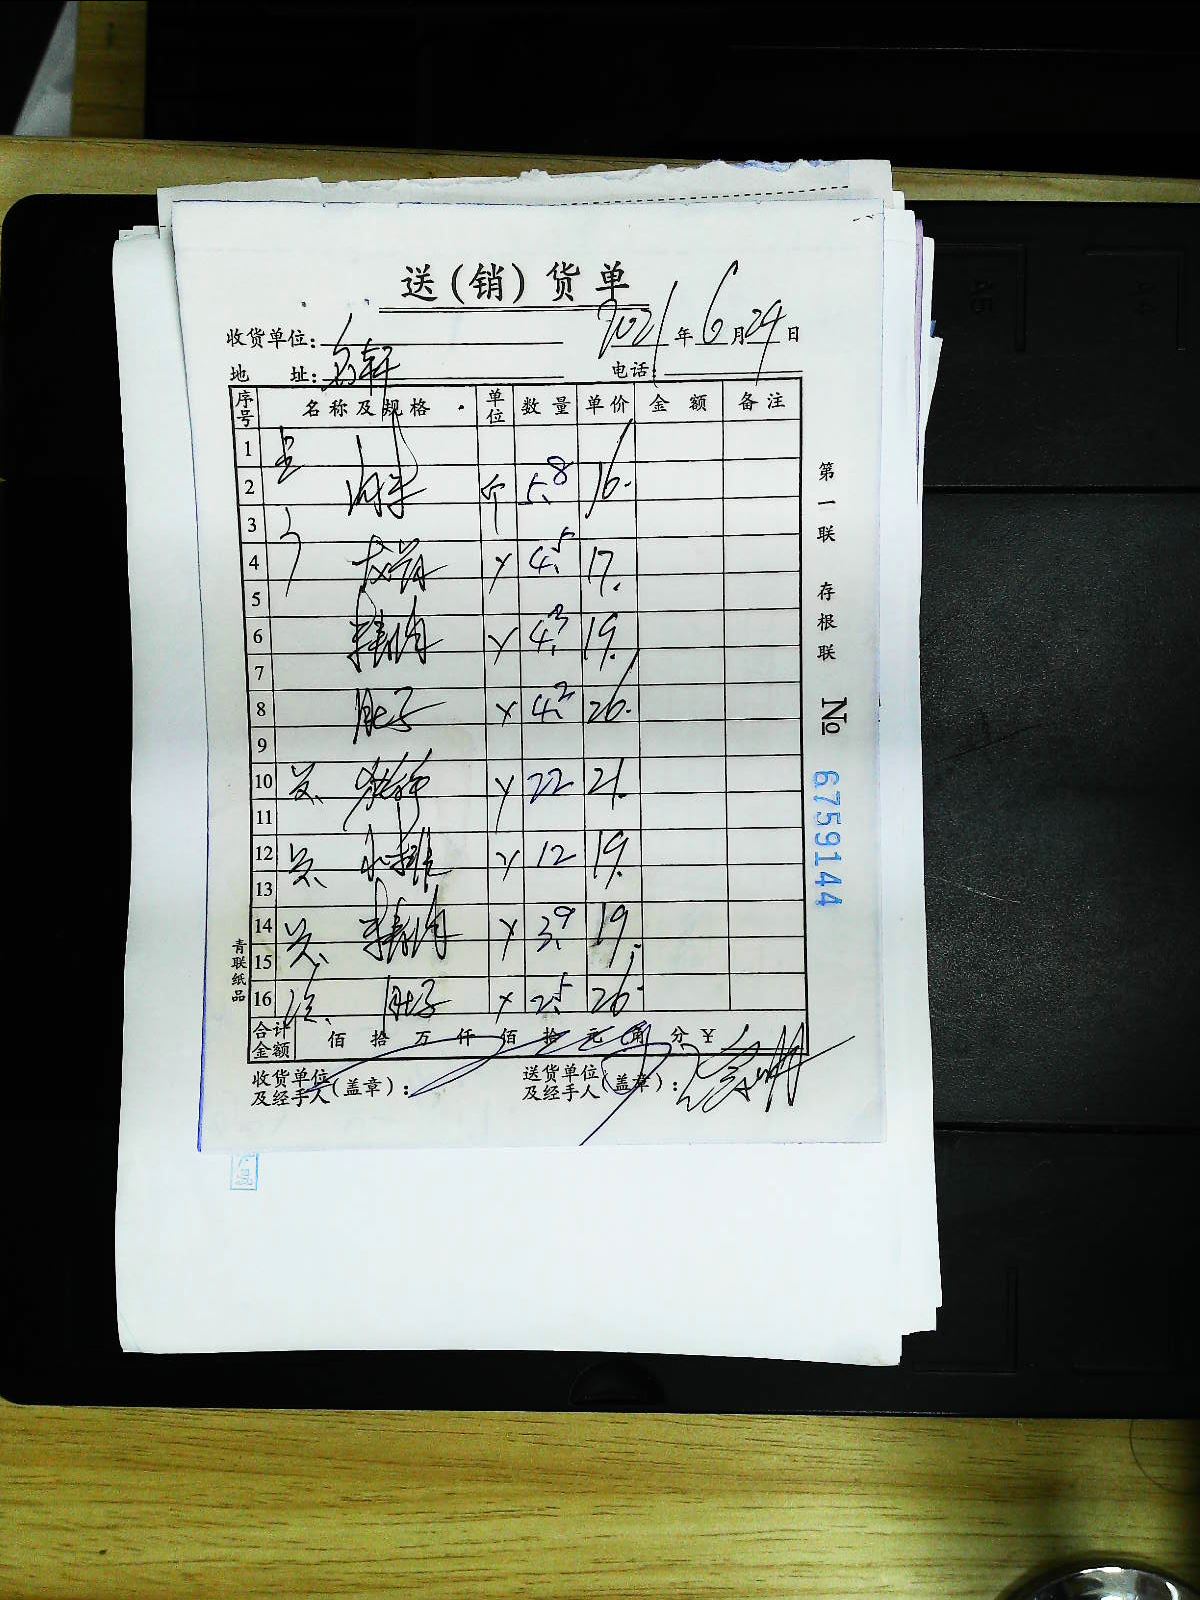 送(销)货单
收货单位: 2021年6月24日
地 址: 轩 电话:
序号 名称及规格 单位 数量 单价 金额 备注
1
2 个 5.8 16.
3
4 4.5 17.
5
6 精肉 4.3 19.
7
8 肚子 4.2 26.
9
10 22 21.
11
12 小排 12 19.
13
14 精肉 3.9 19.
15
16 肚子 2.5 26.
合计金额 佰 拾 万 仟 佰 拾 元 角 分 ¥
收货单位及经手人(盖章): 送货单位及经手人(盖章):
第一联 存根联 № 6759144
青联纸品
A5
A4